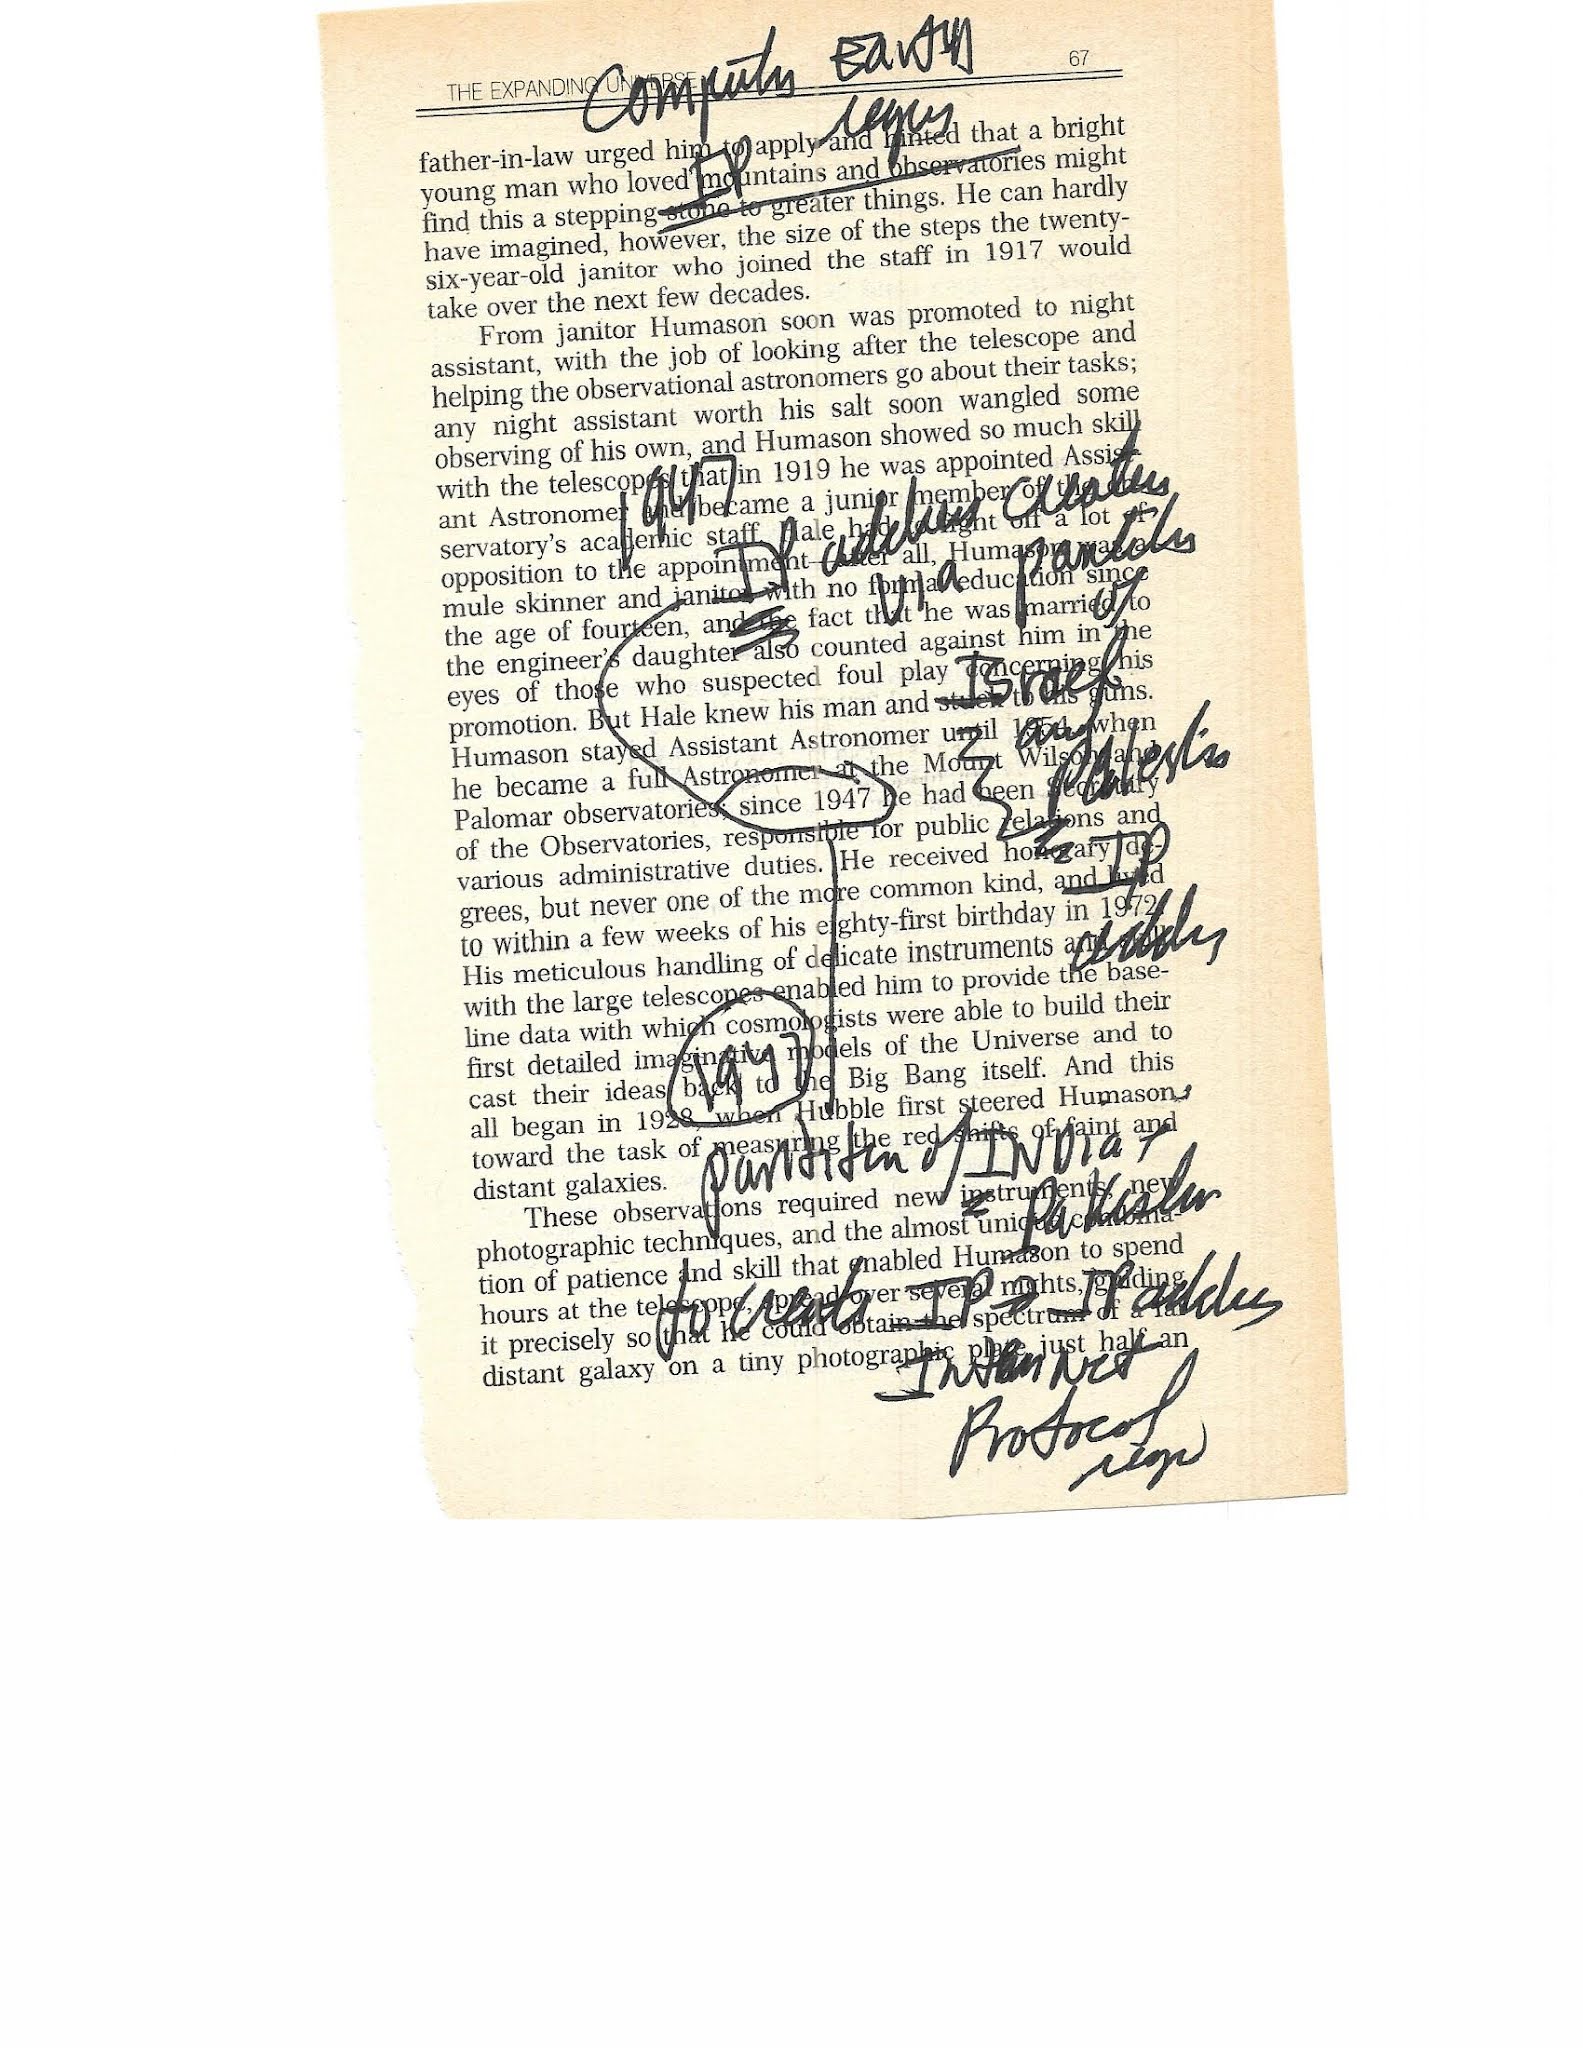 THE EXPANDING UNIVERSE
67
Earth
IP
father-in-law urged him to apply and hinted that a bright
young man who loved mountains and observatories might
find this a stepping stone to greater things. He can hardly
have imagined, however, the size of the steps the twenty-
six-year-old janitor who joined the staff in 1917 would
take over the next few decades.
From janitor Humason soon was promoted to night
assistant, with the job of looking after the telescope and
helping the observational astronomers go about their tasks;
any night assistant worth his salt soon wangled some
observing of his own, and Humason showed so much skill
with the telescopes that in 1919 he was appointed Assist-
ant Astronomer and became a junior member of the
servatory's academic staff. Hale had to fight off a lot of
opposition to the appointment—after all, Humason was a
mule skinner and janitor with no formal education since
the age of fourteen, and the fact that he was married to
the engineer's daughter also counted against him in the
eyes of those who suspected foul play concerning his
promotion. But Hale knew his man and stuck to his guns.
Humason stayed Assistant Astronomer until 1954, when
he became a full Astronomer at the Mount Wilson and
Palomar observatories; since 1947 he had been Secretary
of the Observatories, responsible for public relations and
various administrative duties. He received honorary de-
grees, but never one of the more common kind, and lived
to within a few weeks of his eighty-first birthday in 1972.
His meticulous handling of delicate instruments and
with the large telescopes enabled him to provide the base-
line data with which cosmologists were able to build their
first detailed imaginative models of the Universe and to
cast their ideas back to the Big Bang itself. And this
all began in 1928, when Hubble first steered Humason
toward the task of measuring the red shifts of faint and
distant galaxies.
These observations required new instruments, new
photographic techniques, and the almost unique combina-
tion of patience and skill that enabled Humason to spend
hours at the telescope, spread over several nights, guiding
it precisely so that he could obtain the spectrum of a
distant galaxy on a tiny photographic plate just half an
1947
IP address
via
Israel
IP
address
1947
partition of INDIA +
Pakistan
to create IP → IP address
Internet
Protocol